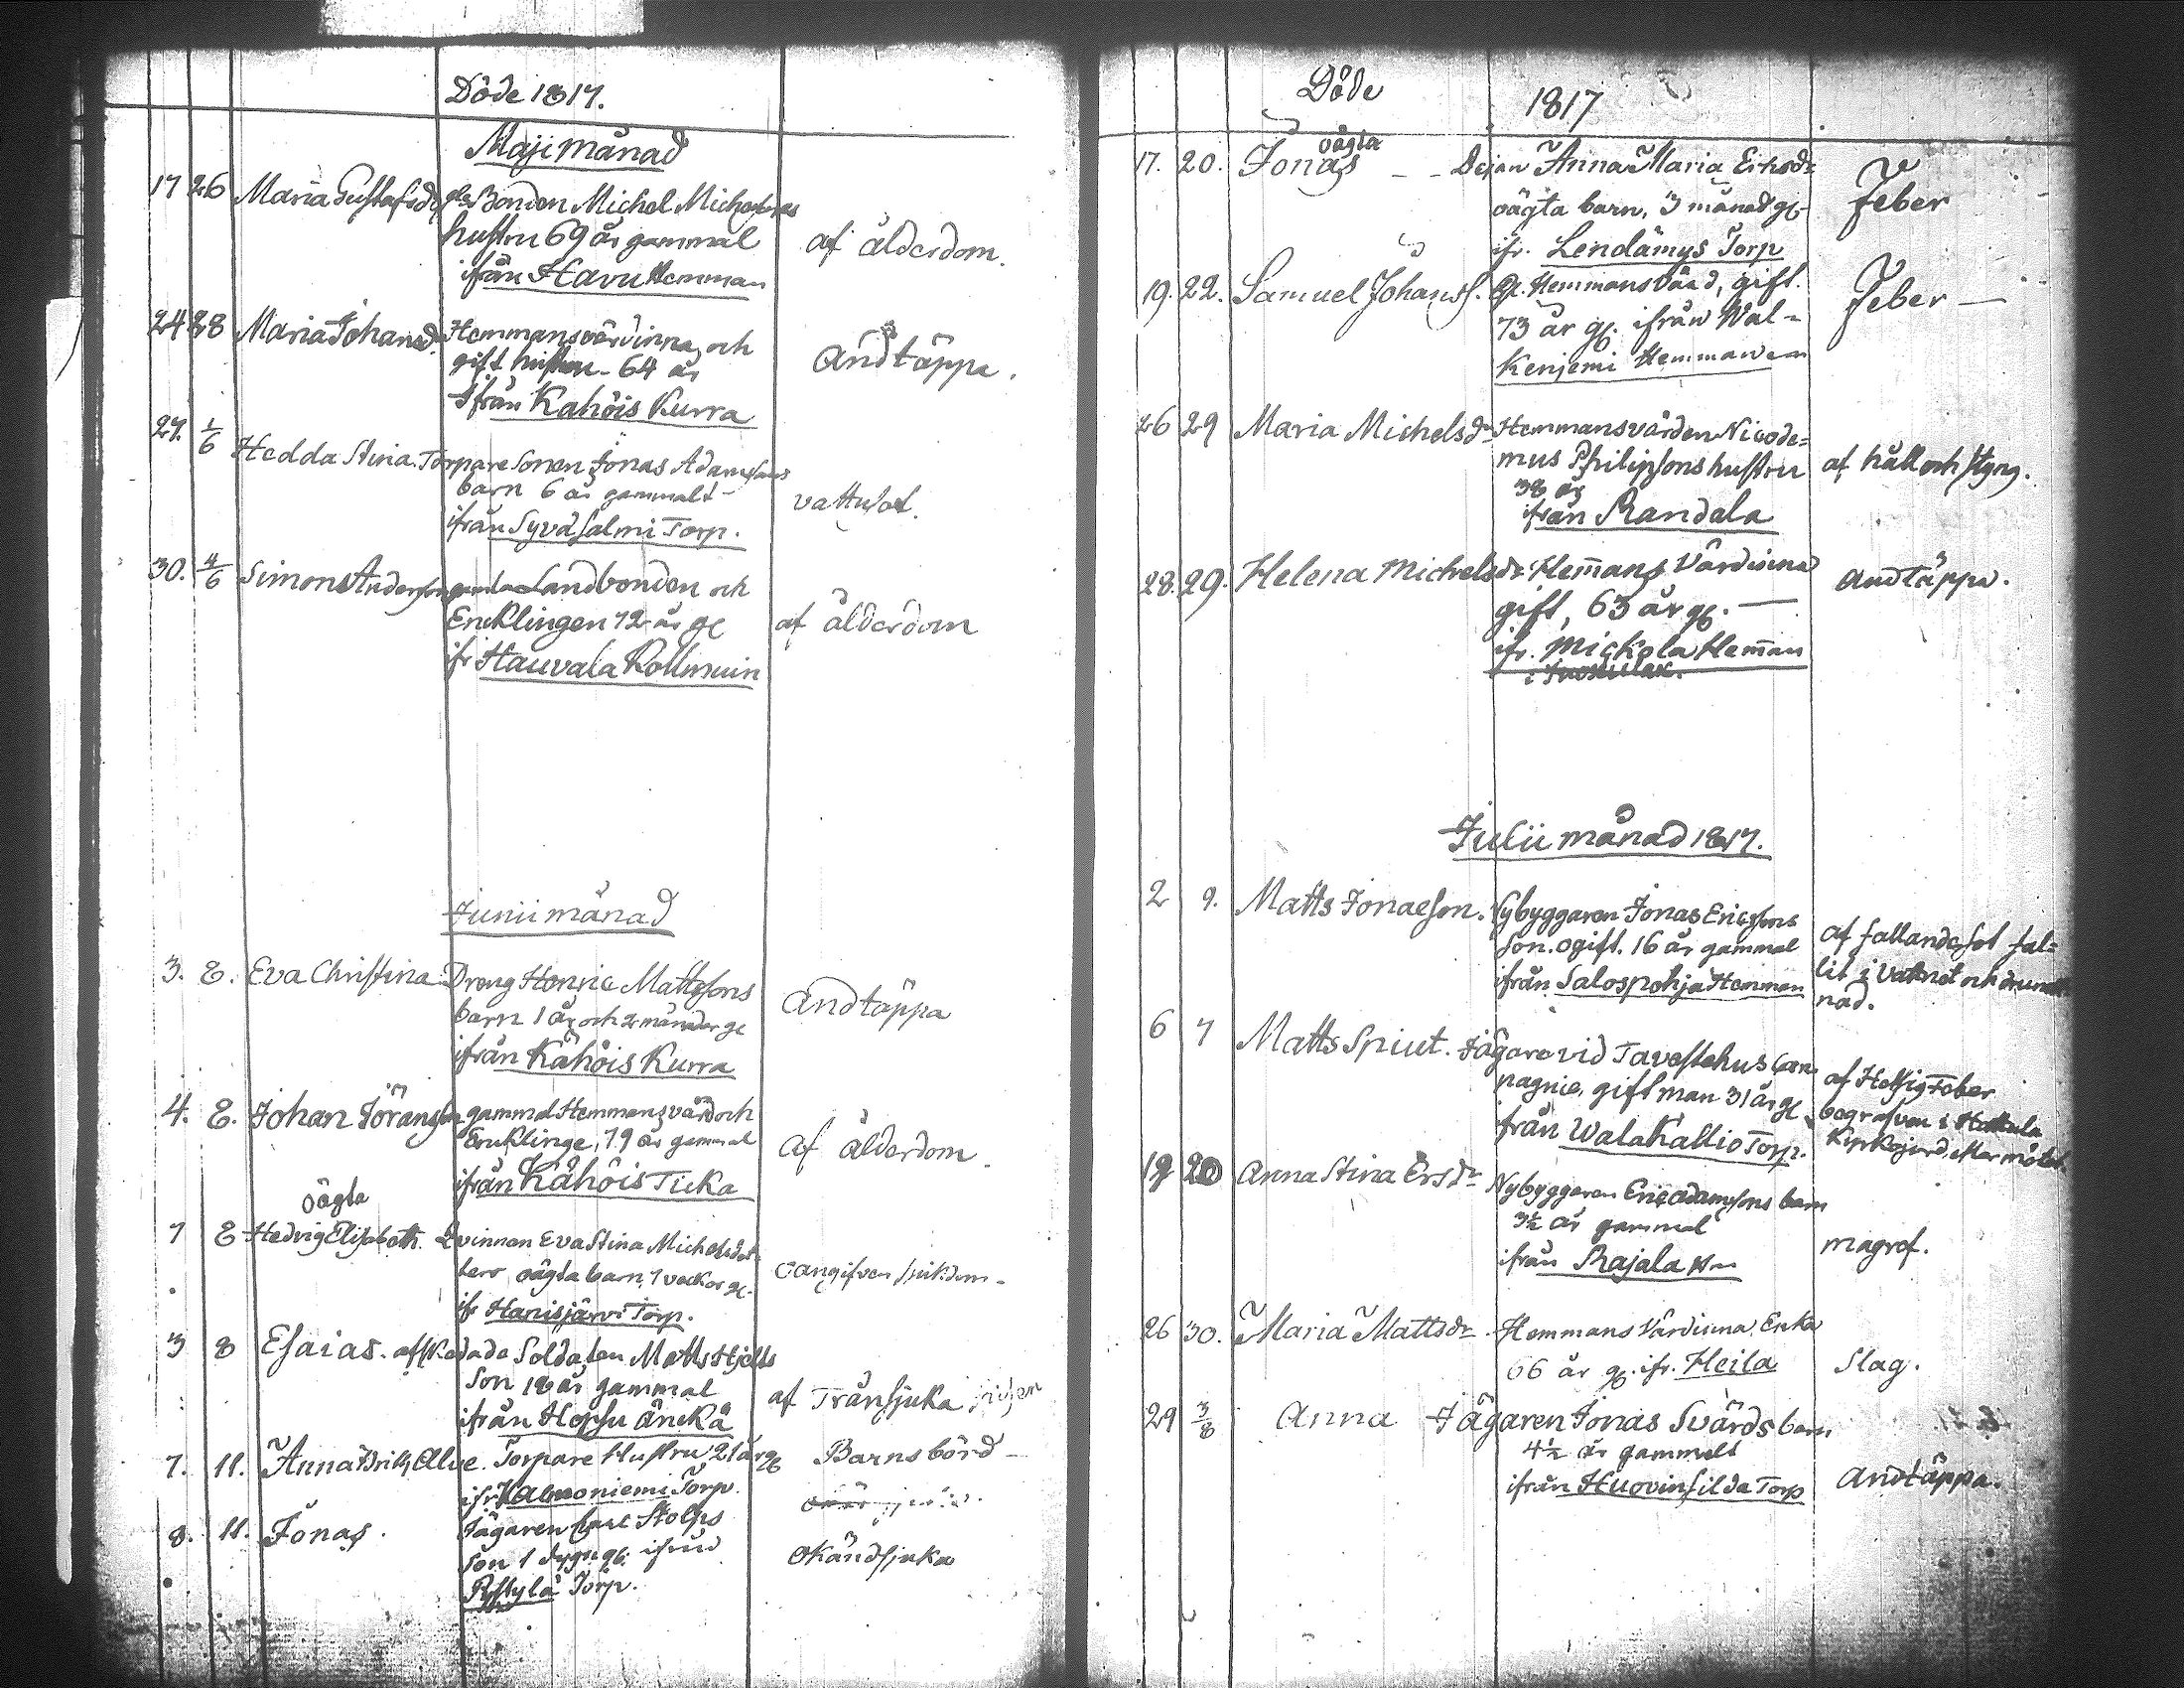 Döde 1817.
Maji månad
17 26 Maria Gustafsdr gla Bonden Michel Michelsons
hustru 69 år gammal
ifrån Havu Hemman
af ålderdom.
24 28 Maria Johansdr Hemmansvärdinna och
gift hustru 64 år
ifrån Kahöis Kurra
Andtäppa.
27. 1/6 Hedda Stina. Torpare Sonen Jonas Adamssons
barn 6 år gammalt
ifrån Syväsalmi Torp.
vattusot.
30. 4/6 Simon Anderson gamla Landbonden och
Encklingen 72 år gl
ifr Hauvala Kollmuin
af ålderdom
Junii månad
3. 8. Eva Christina Dreng Henric Mattssons
barn 1 år och 2 månader gl
ifrån Kahöis Kurra
Andtäppa
4. 8. Johan Göransson gammal Hemmansvärd och
Encklinge, 79 år gammal
ifrån Kahöis Ticka
af ålderdom.
oägta
7 8 Hedvig Elisabeth. Qvinnan Eva Stina Michelsdot-
ters oägta barn, 7 veckor gl.
ifr Hanisjärvi Torp.
oangifven sjukdom.
3 8 Esaias. afskedade Soldaten Matts Hjelts
Son 18 år gammal
ifrån Hopsu Änckä
af Trånsjuka
7. 11. Anna Brita Olve. Torpare Hustru 21 år gl
ifr Kalmoniemi Torp.
Barnsbörd
8. 11. Jonas. Jägaren Carl Stolps
Son 1 dygn gl. ifrån
Torp.
Okänd sjuka
Döde 1817
oägta
17. 20. Jonas Dejan Anna Maria Ersdr
oägta barn, 3 månad gl
ifr. Lendämys Torp
Feber
19. 22. Samuel Johanss. Gl. Hemmansvärd, gift.
73 år gl. ifrån Wal-
kenjemi Hemman
Feber
26 29 Maria Michelsdr Hemmansvärden Nicode-
mus Philipsons hustru
38 år
ifrån Randala
af håll och styng.
28. 29. Helena Michelsdr Hemans Värdinna
gift, 63 år gl.
ifr. Mickola Heman
Andtäppa.
Julii månad 1817.
2 9. Matts Jonaeson. Nybyggaren Jonas Ericssons
Son. ogift. 16 år gammal
ifrån Salospohja Hemman
af fallandesot fal-
lit i Vattnet och drunk
nad.
6 7 Matts Spiut. Jägare vid Tavastehus Com-
pagnie, gift man 31 år gl
från Walakallio Torp.
af Hetsig Feber
begrafven i Hattula
Kyrkojord efter mötet.
19 20 Anna Stina Ersdr Nybyggaren Eric Adamssons barn
3½ år gammal
ifrån Rajala
magref.
26 30. Maria Mattsdr. Hemmans Värdinna Enka
66 år gl. ifr. Heila
Slag.
29 3/8 Anna Jägaren Jonas Svärds barn
4½ år gammalt
ifrån Huovinsilda Torp
Andtäppa.